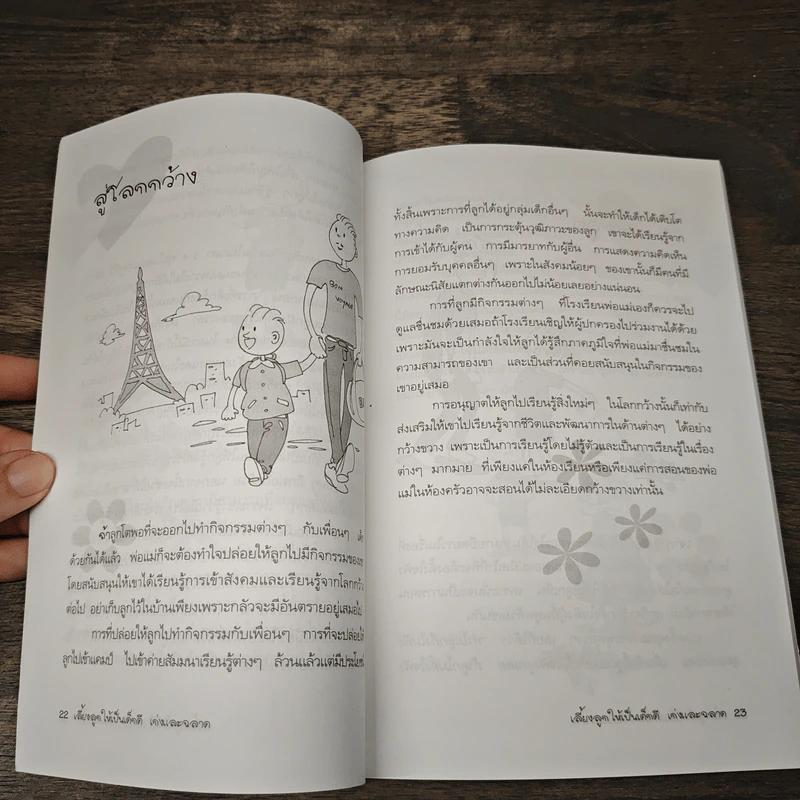 สู่โลกกว้าง
BON
VOYAGE
ถ้าลูกโตพอที่จะออกไปทำกิจกรรมต่างๆ กับเพื่อนๆ
ด้วยกันได้แล้ว พ่อแม่ก็จะต้องทำใจปล่อยให้ลูกไปมีกิจกรรมของ
โดยสนับสนุนให้เขาได้เรียนรู้การเข้าสังคมและเรียนรู้จากโลกกว้
ต่อไป อย่าเก็บลูกไว้ในบ้านเพียงเพราะกลัวจะมีอันตรายอยู่เสมอไป
การที่ปล่อยให้ลูกไปทำกิจกรรมกับเพื่อนๆ การที่จะปล่อยให้
ลูกไปเข้าแคมป์ ไปเข้าค่ายสัมมนาเรียนรู้ต่างๆ ล้วนแล้วแต่มีประโย
22 เลี้ยงลูกให้เป็นเด็กดี เก่งและฉลาด
ทั้งสิ้นเพราะการที่ลูกได้อยู่กลุ่มเด็กอื่นๆ นั้นจะทำให้เด็กได้เติบโต
ทางความคิด เป็นการกระตุ้นวุฒิภาวะของลูก เขาจะได้เรียนรู้จาก
การเข้าได้กับผู้คน การมีมารยาทกับผู้อื่น การแสดงความคิดเห็น
การยอมรับบุคคลอื่นๆ เพราะในสังคมน้อยๆ ของเขานั้นก็มีคนที่มี
ลักษณะนิสัยแตกต่างกันออกไปไม่น้อยเลยอย่างแน่นอน
การที่ลูกมีกิจกรรมต่างๆ ที่โรงเรียนพ่อแม่เองก็ควรจะไป
ดูแลชื่นชมด้วยเสมอถ้าโรงเรียนเชิญให้ผู้ปกครองไปร่วมงานได้ด้วย
เพราะมันจะเป็นกำลังใจให้ลูกได้รู้สึกภาคภูมิใจที่พ่อแม่มาชื่นชมใน
ความสามารถของเขา และเป็นส่วนที่คอยสนับสนุนในกิจกรรมของ
เขาอยู่เสมอ
การอนุญาตให้ลูกไปเรียนรู้สิ่งใหม่ๆ ในโลกกว้างนั้นก็เท่ากับ
ส่งเสริมให้เขาไปเรียนรู้จากชีวิตและพัฒนาการในด้านต่างๆ ได้อย่าง
กว้างขวาง เพราะเป็นการเรียนรู้โดยไม่รู้ตัวและเป็นการเรียนรู้ในเรื่อง
ต่างๆ มากมาย ที่เพียงแค่ในห้องเรียนหรือเพียงแค่การสอนของพ่อ
แม่ในห้องครัวอาจจะสอนได้ไม่ละเอียดกว้างขวางเท่านั้น
เลี้ยงลูกให้เป็นเด็กดี เก่งและฉลาด 23